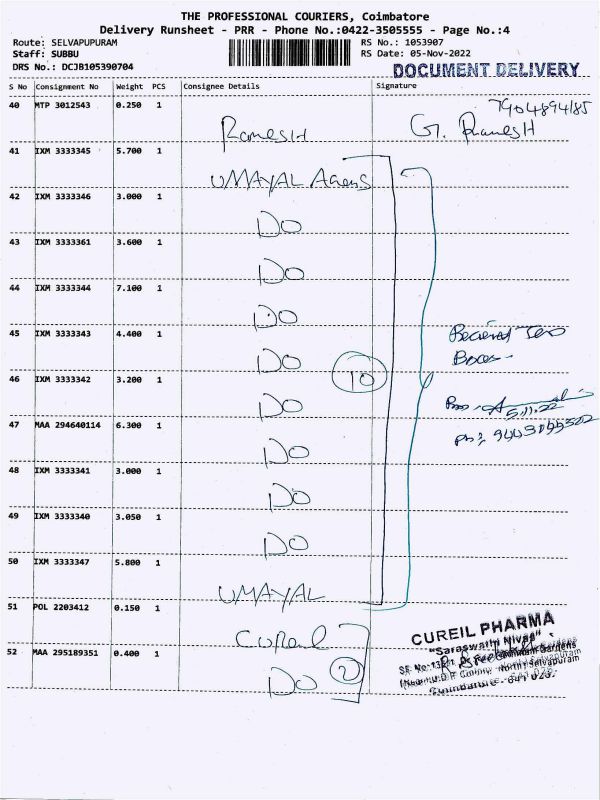 THE PROFESSIONAL COURIERS, Coimbatore
Delivery Runsheet - PRR - Phone No.:0422-3505555 - Page No.:4
Route: SELVAPUPURAM
RS No.: 1053907
Staff: SUBBU
RS Date: 05-Nov-2022
DRS No.: DCJB105390704
DOCUMENT DELIVERY
S No Consignment No Weight PCS Consignee Details Signature
40 MTP 3012543 0.250 1
7904894185
RamesH G. RamesH
41 IXM 3333345 5.700 1
UMAYAL
42 IXM 3333346 3.000 1
DO
43 IXM 3333361 3.600 1
DO
44 IXM 3333344 7.100 1
DO
45 IXM 3333343 4.400 1
DO
10
46 IXM 3333342 3.200 1
DO
5.11.22
47 MAA 294640114 6.300 1
DO
48 IXM 3333341 3.000 1
DO
49 IXM 3333340 3.050 1
DO
50 IXM 3333347 5.800 1
UMAYAL
51 POL 2203412 0.150 1
CUREIL PHARMA
"Saraswathi Nivas"
52 MAA 295189351 0.400 1
DO 2
Selvapuram
Coimbatore